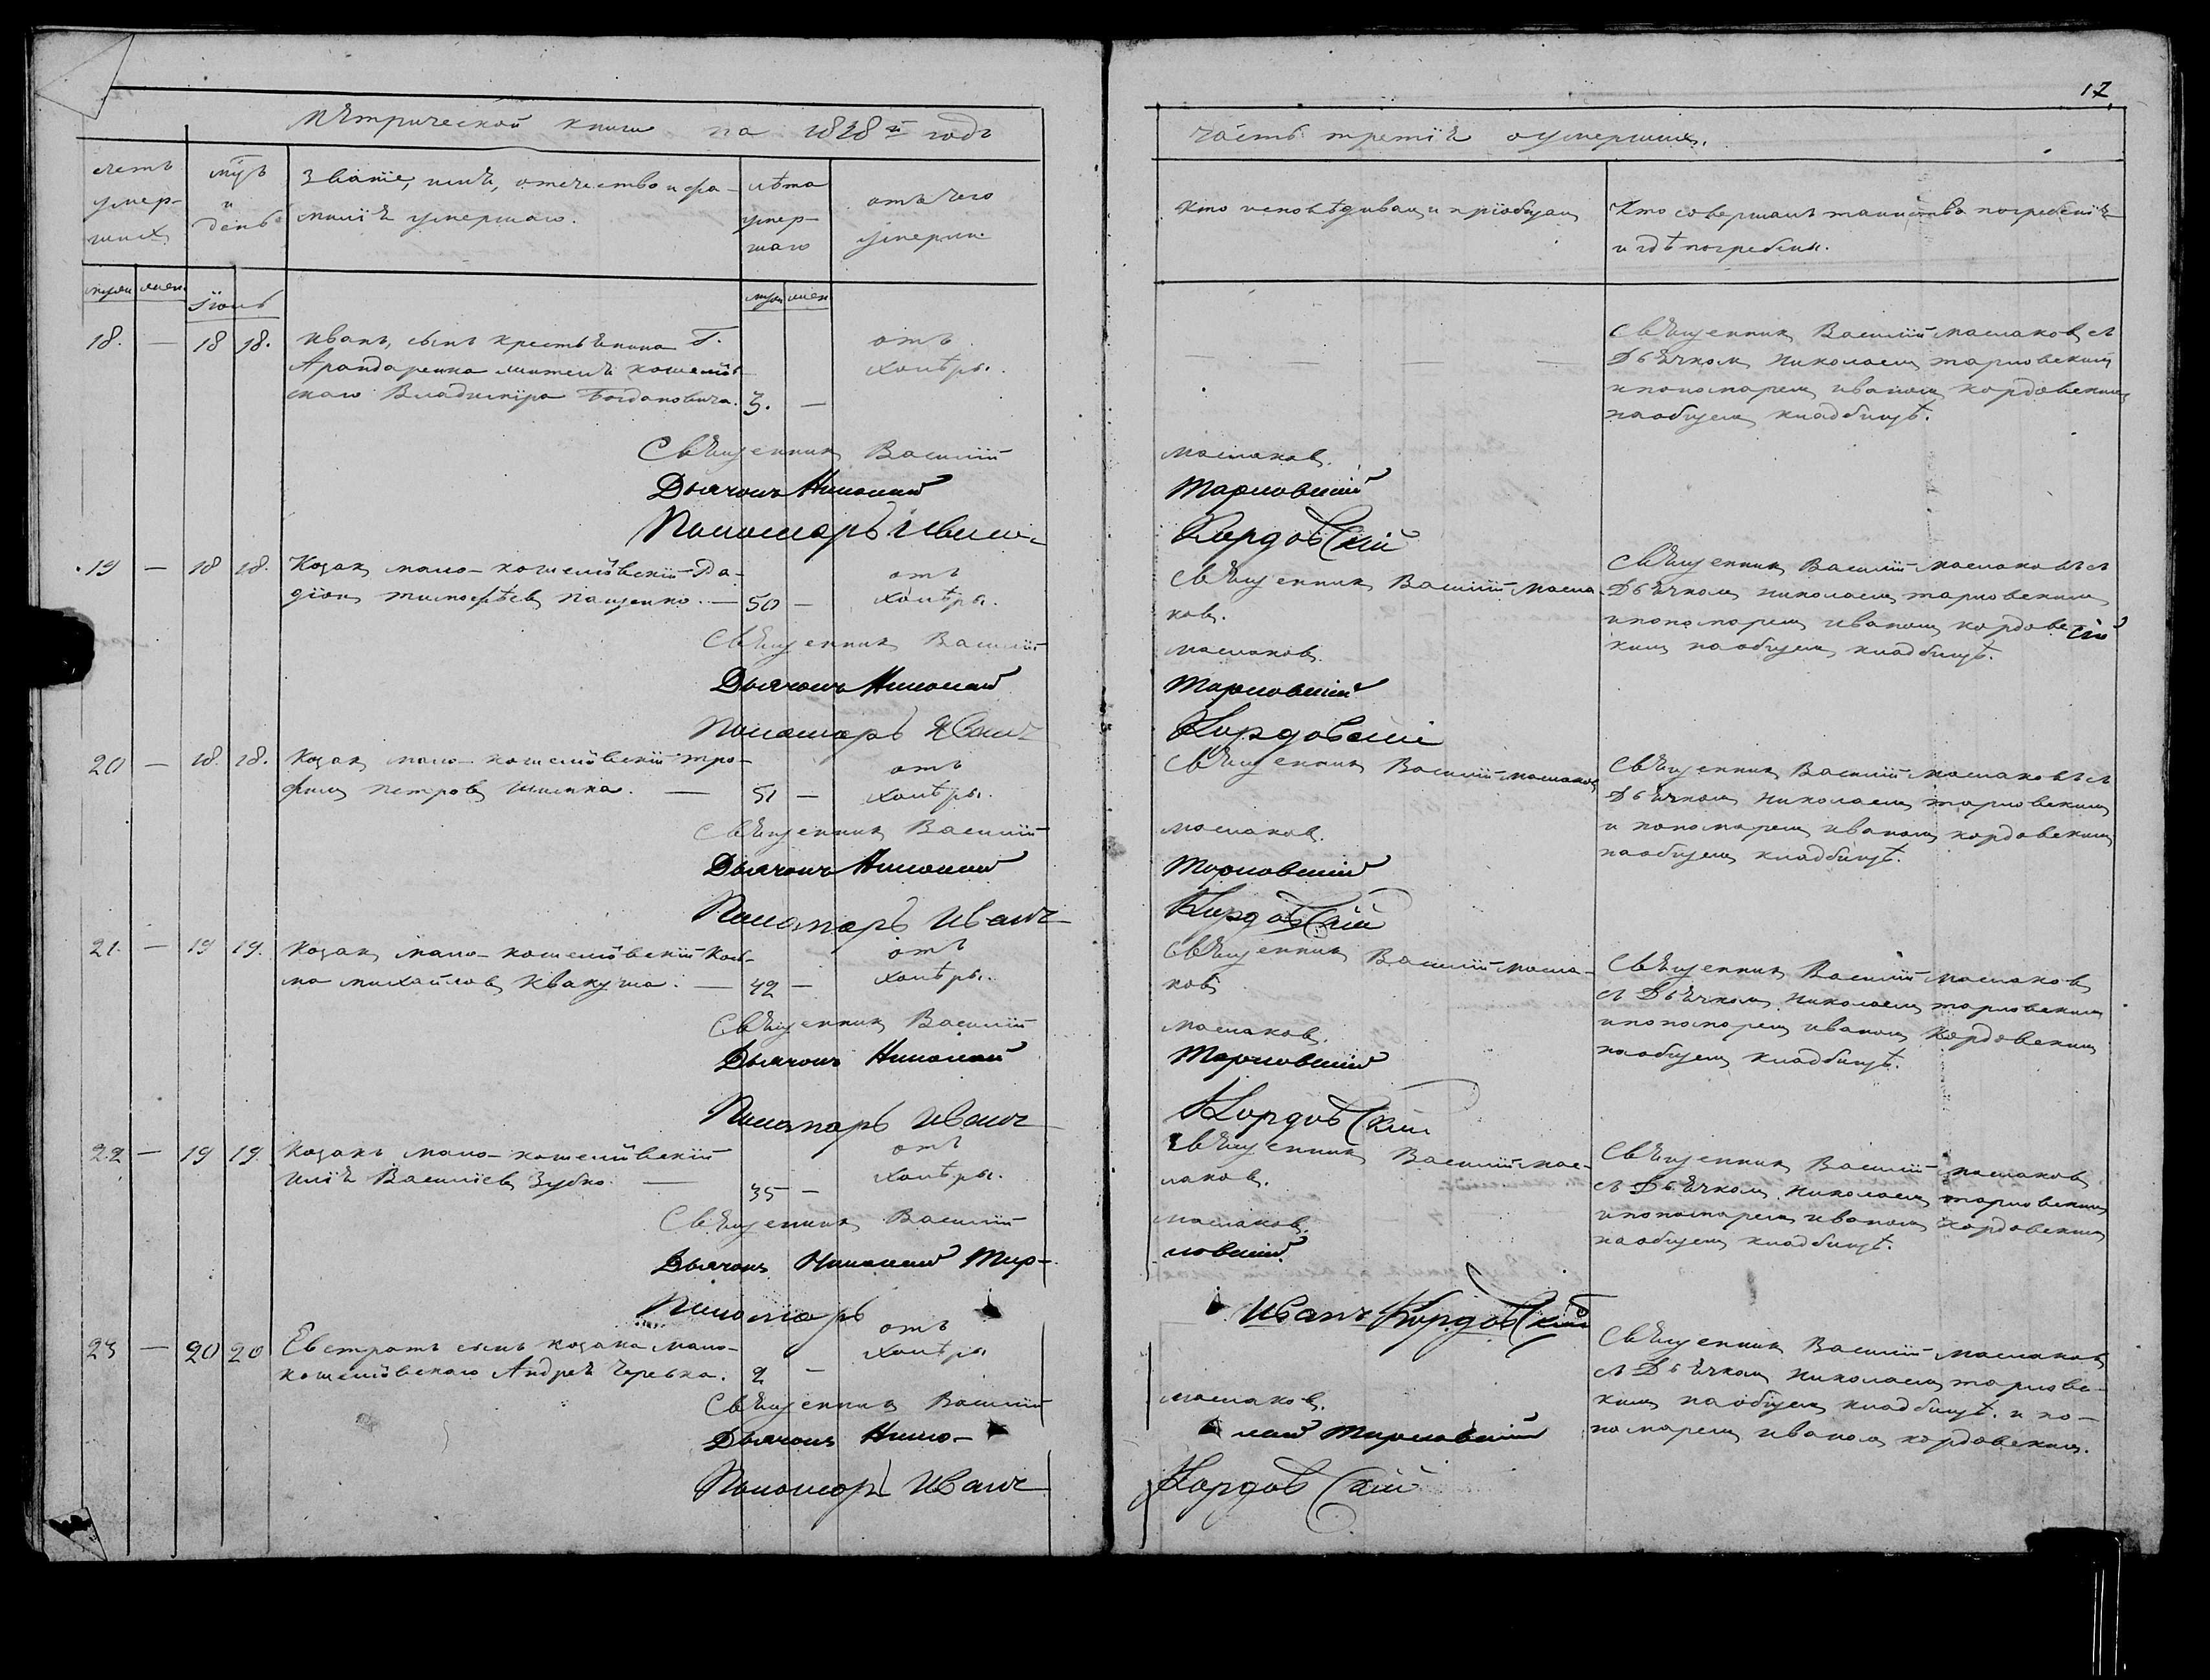 17
метрической книги на 1848й годъ
часть третія о умершихъ.
счетъ умер-
шихъ
мцъ
и
день
Званіе, имя, отечество и фа-
милія умершаго.
лѣта
умер-
шаго
отъ чего
умерли
Кто исповѣдывалъ и пріобщалъ
Кто совершалъ таинство погребенія
и гдѣ погребены.
муж жен
Іюнь
муж жен
18. — 18 18. Иванъ, сынъ крестьянина Г.
Арандаренка жителя кошелів-
скаго Владиміра Богдановича. 3. —
отъ
холѣры.
Священникъ Василій Маслаковъ съ
Дьячкомъ Николаемъ Тарновскимъ
и пономаремъ Иваномъ Кордовскимъ
на общемъ кладбищѣ.
Священникъ Василій Маслаковъ.
Дьячокъ Николай Тарновскій
Пономарь Иванъ Кордовскій
19 — 18 18. Козакъ мало-кошелівскій Ра-
діонъ Тимофѣевъ Пащенко. — 50 —
отъ
холѣры.
Священникъ Василій Масла-
ковъ.
Священникъ Василій Маслаковъ съ
Дьячкомъ Николаемъ Тарновскимъ
и пономаремъ Иваномъ Кордовс-
кимъ на общемъ кладбищѣ.
Священникъ Василій Маслаковъ.
Дьячокъ Николай Тарновскій
Пономарь Иванъ Кордовскій
20 — 18. 18. Козакъ мало-кошелівскій Тро-
фимъ Петровъ Шишка. — 51 —
отъ
холѣры.
Священникъ Василій Маслаковъ
Священникъ Василій Маслаковъ съ
Дьячкомъ Николаемъ Тарновскимъ
и пономаремъ Иваномъ Кордовскимъ
на общемъ кладбищѣ.
Священникъ Василій Маслаковъ.
Дьячокъ Николай Тарновскій
Пономарь Иванъ Кордовскій
21. — 19 19. Козакъ мало-кошелівскій Кось-
ма Михайловъ Квакуша. — 42 —
отъ
холѣры.
Священникъ Василій Масла-
ковъ
Священникъ Василій Маслаковъ
съ Дьячкомъ Николаемъ Тарновскимъ
и пономаремъ Иваномъ Кордовскимъ
на общемъ кладбищѣ.
Священникъ Василій Маслаковъ.
Дьячокъ Николай Тарновскій
Пономарь Иванъ Кордовскій
22 — 19 19. Козакъ мало-кошелівскій
Илія Василіевъ Зубко. — 35 —
отъ
холѣры.
Священникъ Василій Мас-
лаковъ.
Священникъ Василій Маслаковъ
съ Дьячкомъ Николаемъ Тарновскимъ
и пономаремъ Иваномъ Кордовскимъ
на общемъ кладбищѣ.
Священникъ Василій Маслаковъ.
Дьячокъ Николай Тар-
новскій.
Пономарь Иванъ Кордовскій
23 — 20 20 Евстратъ сынъ козака мало-
кошелівскаго Андрея Черевка. 2 —
отъ
холѣры
Священникъ Василій Маслаковъ
съ Дьячкомъ Николаемъ Тарновс-
кимъ на общемъ кладбищѣ. и по-
номаремъ Иваномъ Кордовскимъ.
Священникъ Василій Маслаковъ.
Дьячокъ Нико-
лай Тарновскій
Пономарь Иванъ Кордовскій